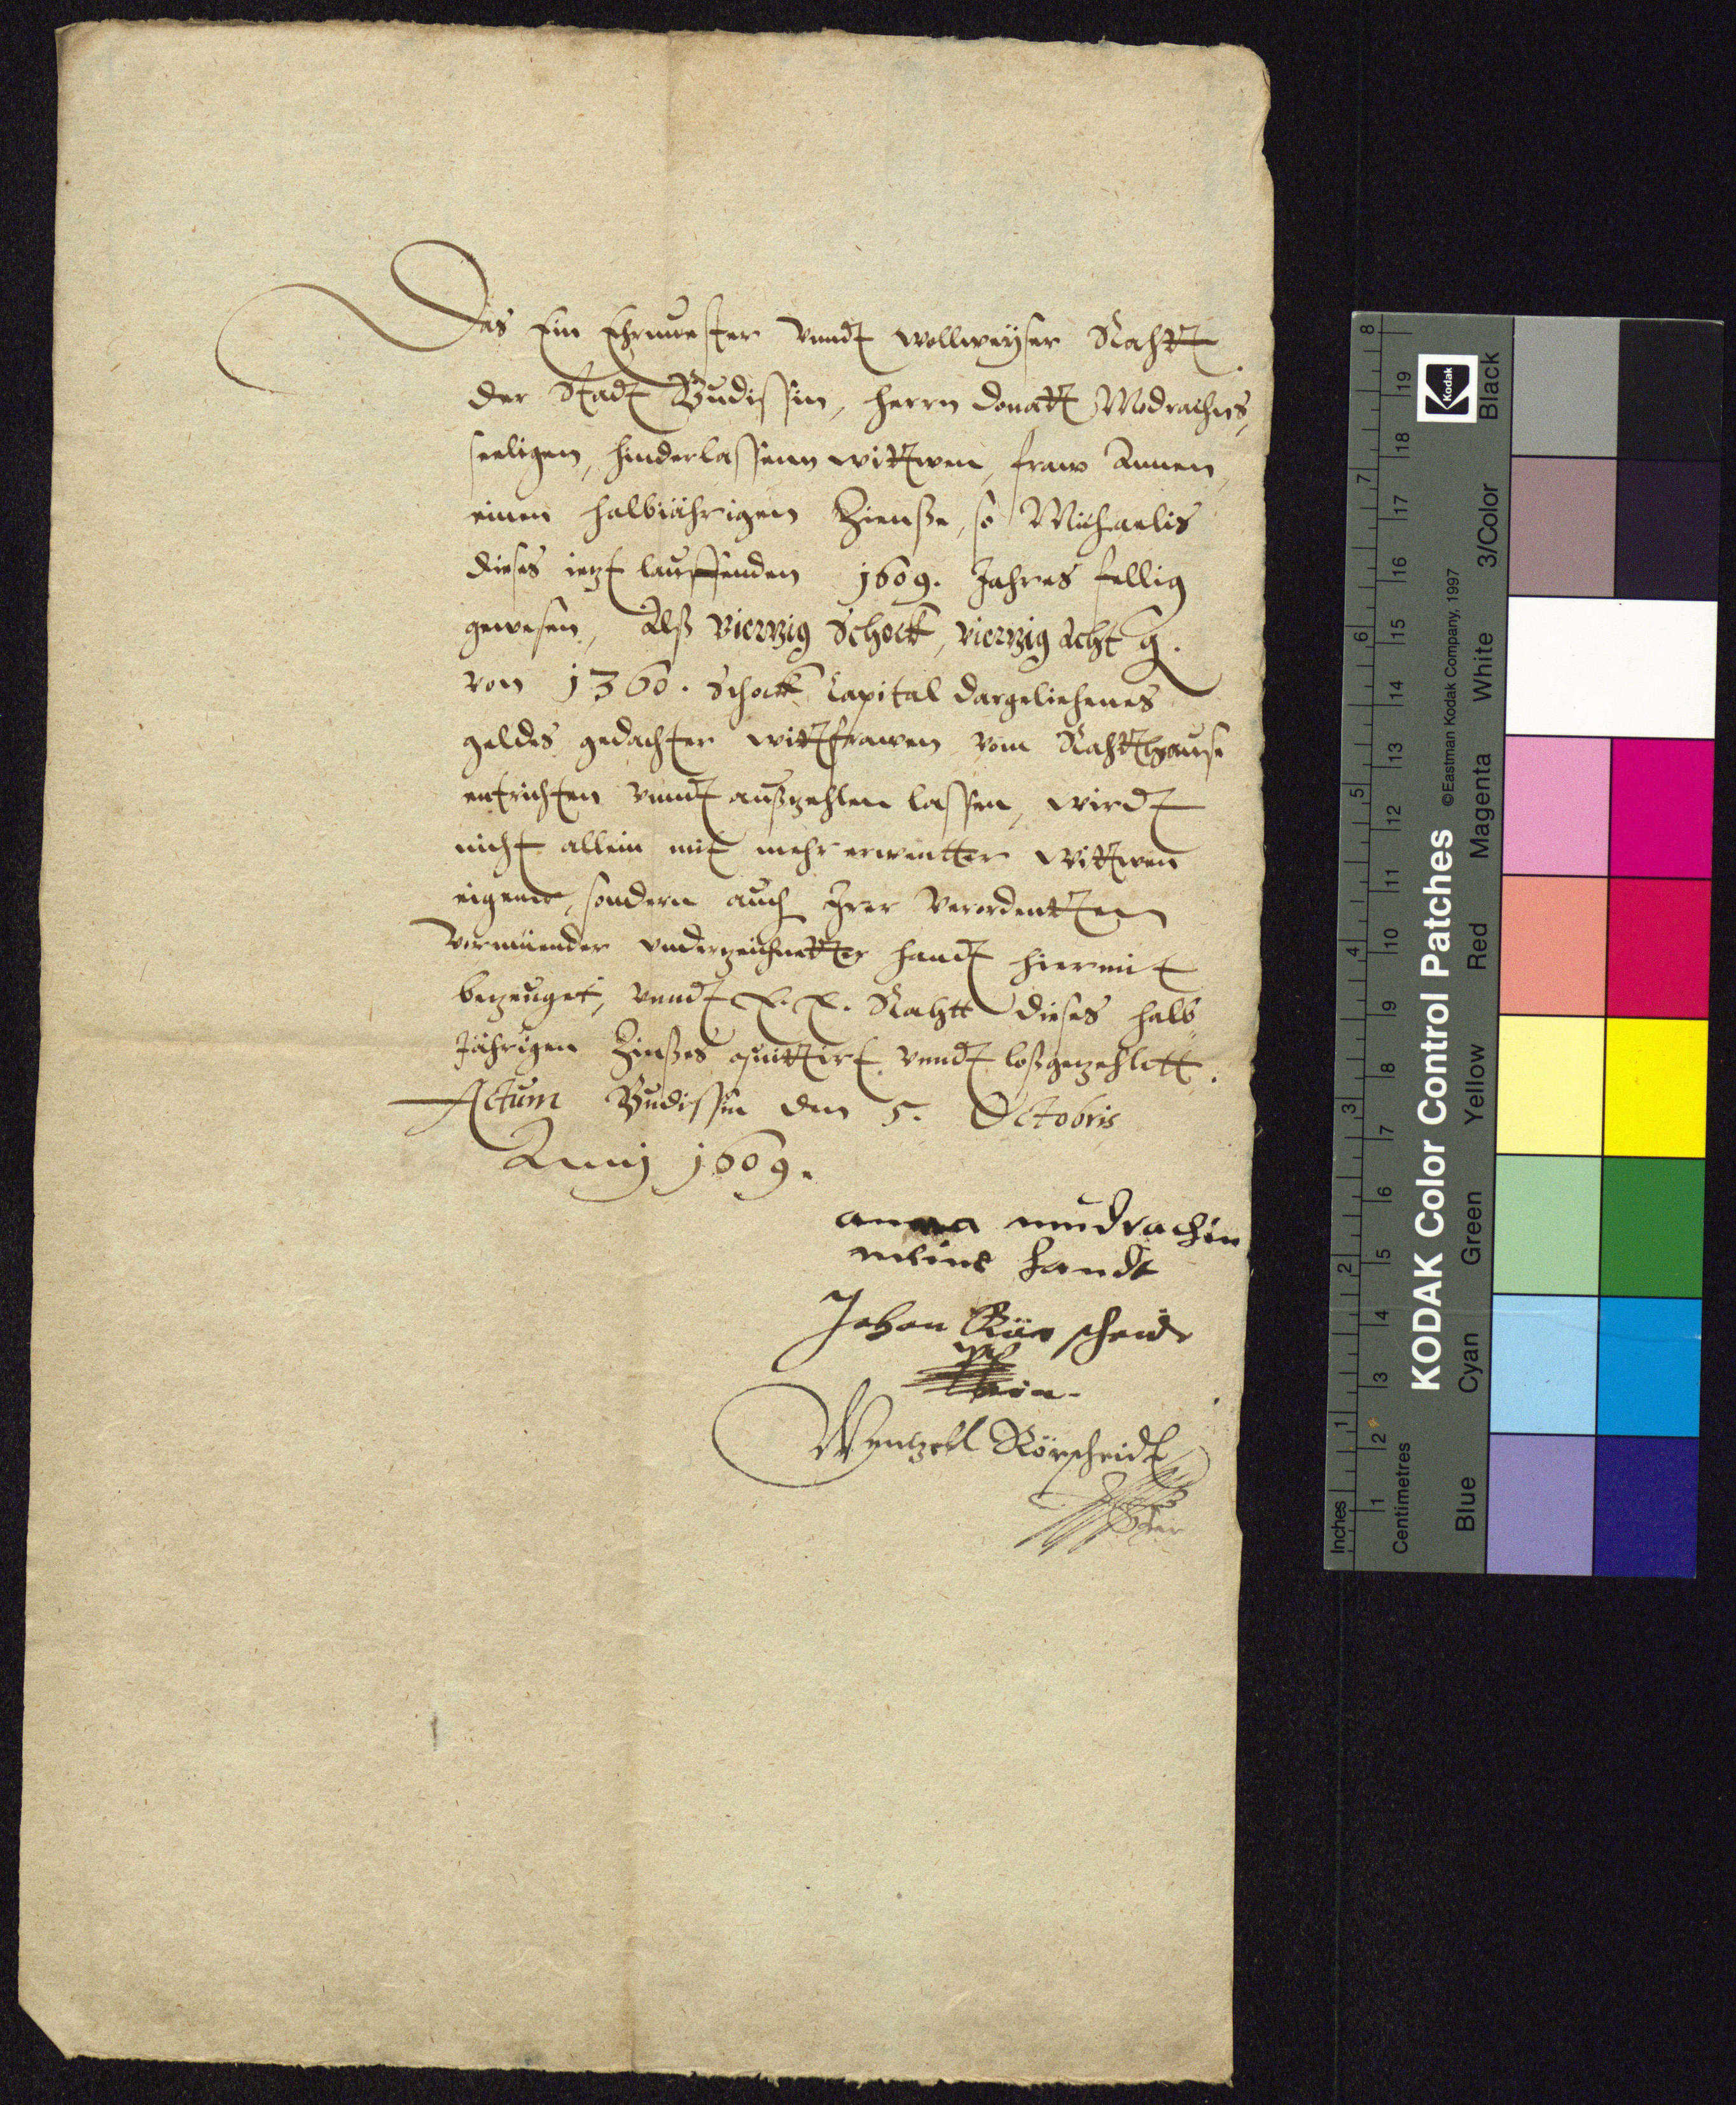 Das Ein Ehrnuester vnndt wollweyser Rahtt
der Stadt Budissin, herrn Donatt Modrachens,
seeligen, hinderlassenn wittwen, fraw Annen,
einen halbiährigen Zienße, so Michaelis
dieses ietzt lauffenden 1609. Jahres fellig
gewesen, Alß Vierzig Schock, vierzig acht g.
von 1360. Schock Capital dargeliehenes
geldes gedachter wittfrawen vom Rahtthause
entrichten vnndt außzehlen lassen, wirdt
nicht allein mit mehr erwentter wittwen
eigene, sondern auch Irer verordentten
Vormüender vnderzeichnetter handt hiermit
bezeuget, vnndt E. E. Rahtt dieses halb
Jährigen Zinßes quittirt vnndt loßgezehlett.
Actum Budissin den 5. Octobris
Anni 1609.
anna mudrachin
meine handt
Johan Rüs scheidt
Wentzell Rörscheidt
KODAK Color Control Patches
©Eastman Kodak Company, 1997
Kodak
Inches
1 2 3 4 5 6 7 8
Centimetres
1 2 3 4 5 6 7 8 9 10 11 12 13 14 15 16 17 18 19
Blue Cyan Green Yellow Red Magenta White 3/Color Black